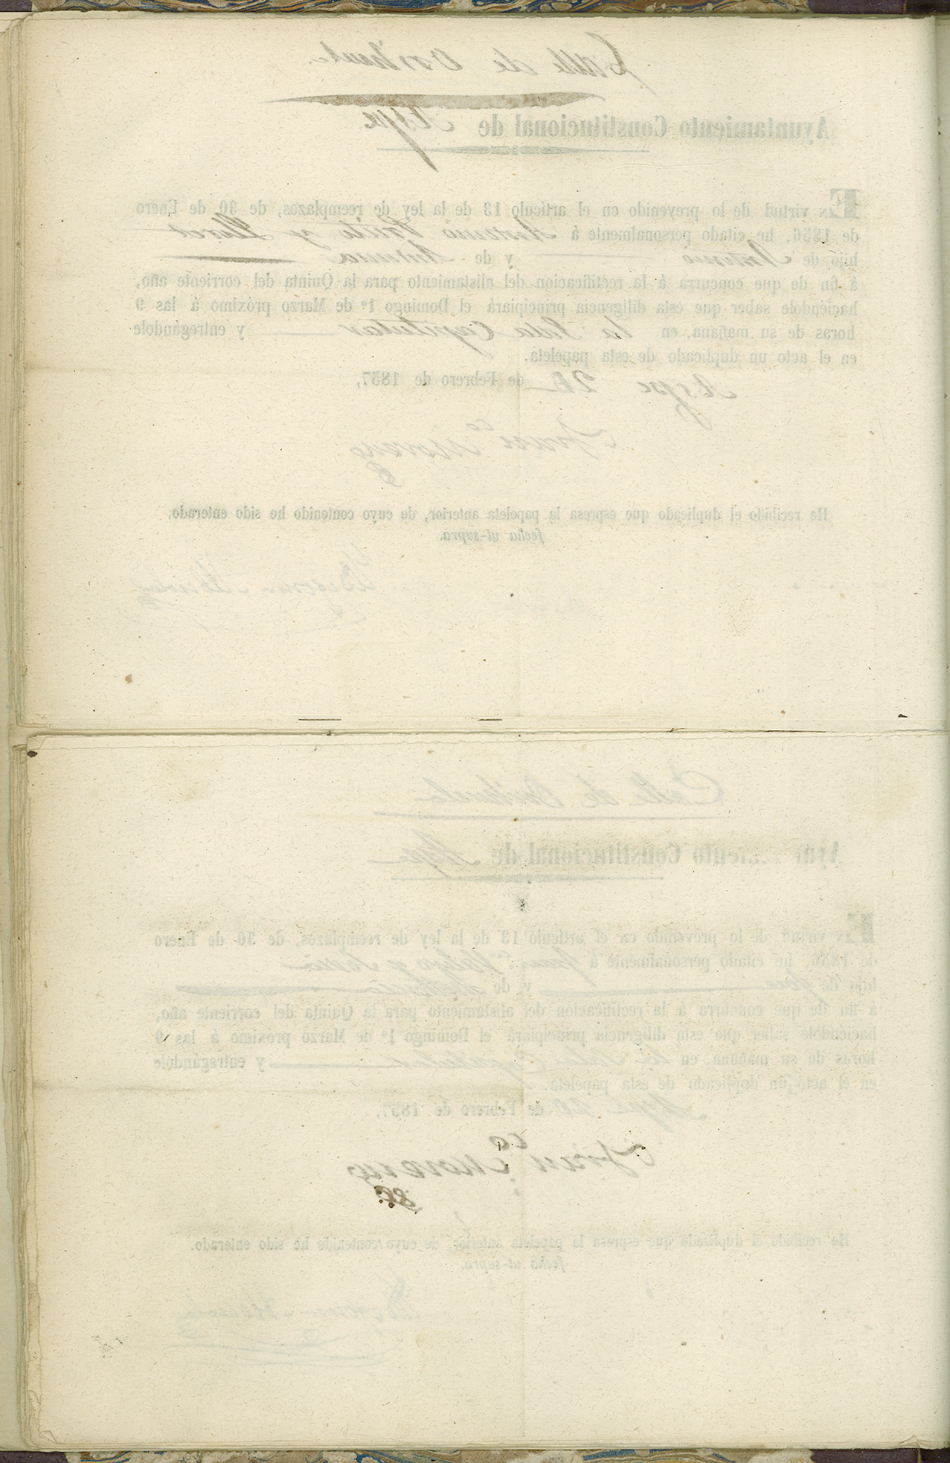 Calle de Oriente.
Ayuntamiento Constitucional de Aspe.
EN virtud de lo prevenido en el artículo 13 de la ley de reemplazos, de 30 de Enero
de 1856, he citado personalmente á Antonio y
hijo de Antonio y de Antonia
á fin de que concurra á la rectificacion del alistamiento para la Quinta del corriente año,
haciéndole saber que esta diligencia principiará el Domingo 1º de Marzo próximo á las 9
horas de su mañana, en la Sala Capitular y entregándole
en el acto un duplicado de esta papeleta.
Aspe 28 de Febrero de 1857.
Franco Moreno
He recibido el duplicado que espresa la papeleta anterior, de cuyo contenido he sido enterado.
fecha ut-supra.
Calle de Oriente
Ayuntamiento Constitucional de Aspe
EN virtud de lo prevenido en el artículo 13 de la ley de reemplazos, de 30 de Enero
de 1856, he citado personalmente á y
hijo de y de
á fin de que concurra á la rectificacion del alistamiento para la Quinta del corriente año,
haciéndole saber que esta diligencia principiará el Domingo 1º de Marzo próximo á las 9
horas de su mañana, en la Sala Capitular y entregándole
en el acto un duplicado de esta papeleta.
Aspe 28 de Febrero de 1857.
Franco Moreno
He recibido el duplicado que espresa la papeleta anterior, de cuyo contenido he sido enterado.
fecha ut-supra.